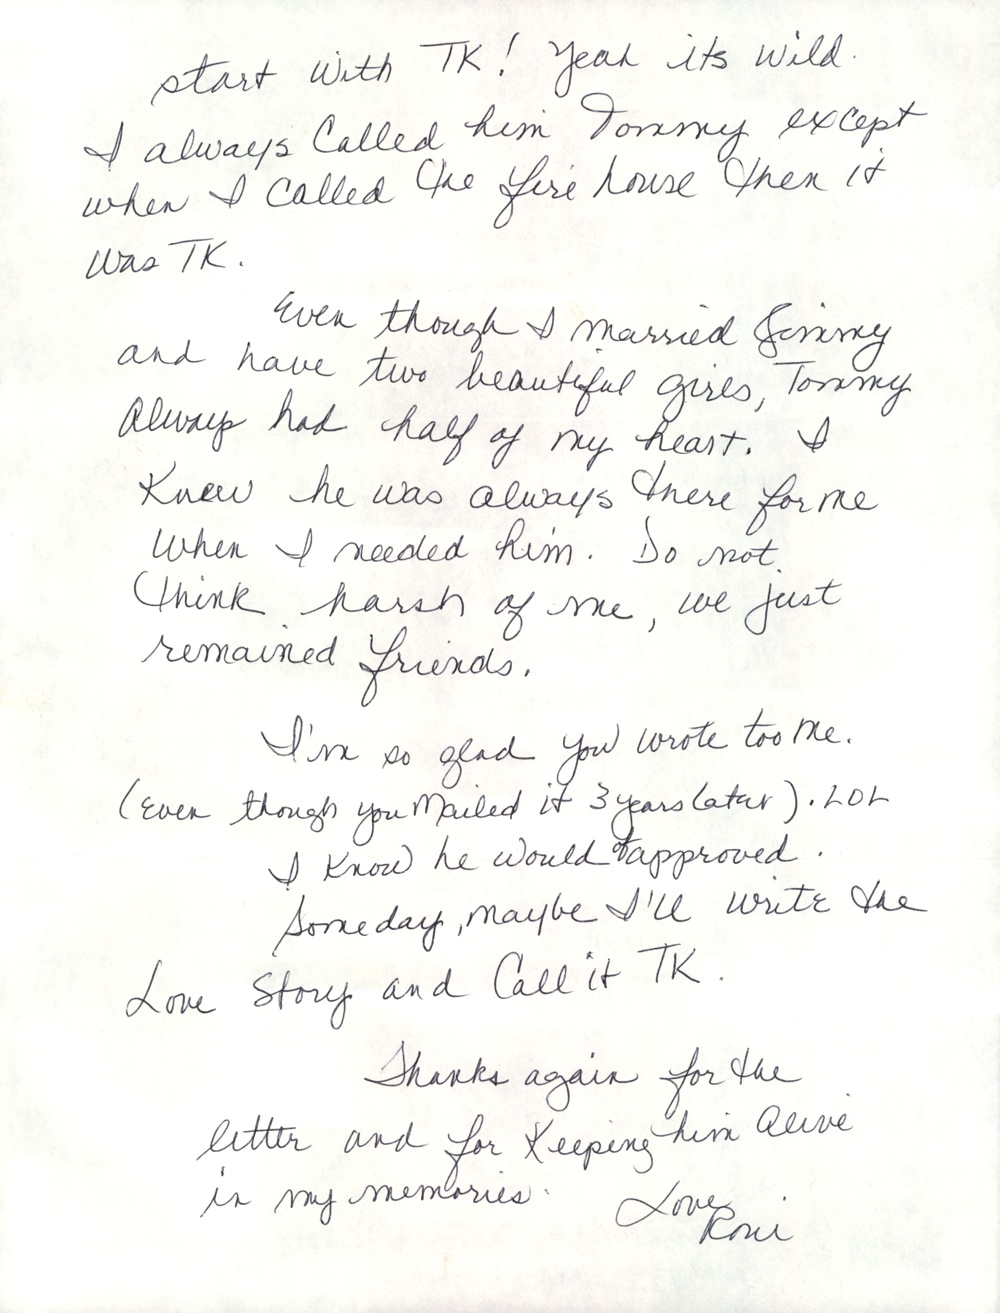 start with TK! Yeah its wild.
I always Called him Tommy except
when I called the fire house then it
was TK.
Even though I married Jimmy
and have two beautiful girls, Tommy
Always had half of my heart. I
Knew he was always there for me
When I needed him. Do not
think harsh of me, we just
remained friends.
I'm so glad you wrote too me.
(Even though you Mailed it 3 years later). LOL
I Know he would of approved.
Someday, maybe I'll write the
Love Story and Call it TK.
Thanks again for the
letter and for Keeping him Alive
in my memories.
Love
Roni